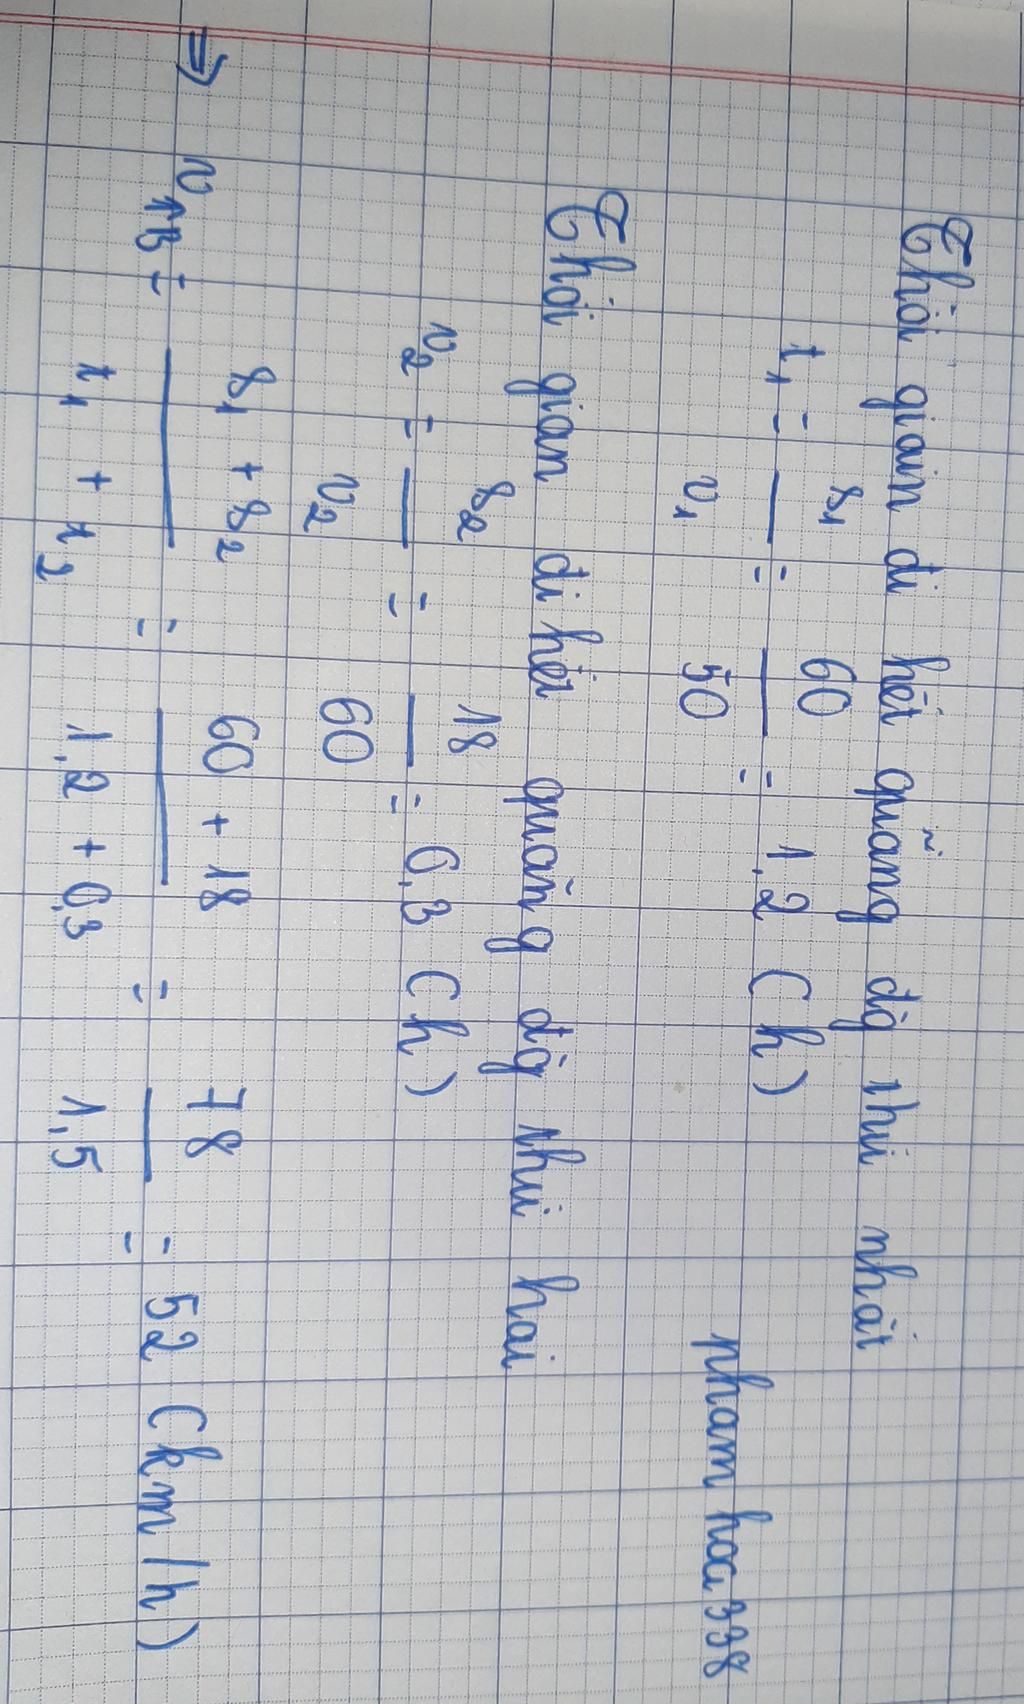 Thời gian đi hết quãng đg thứ nhất
t₁ = s₁/v₁ = 60/50 = 1,2 (h)
pham hoa338
Thời gian đi hết quãng đg thứ hai
v₂ = s₂/v₂ = 18/60 = 0,3 (h)
⇒ v_AB = (s₁ + s₂)/(t₁ + t₂) = (60 + 18)/(1,2 + 0,3) = 78/1,5 = 52 (km/h)